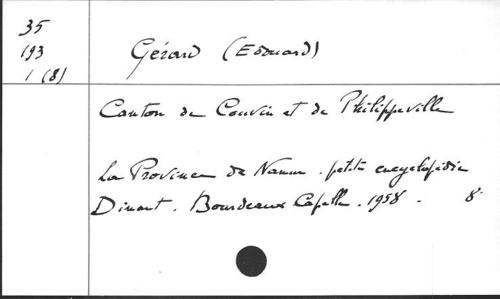 35
193
1 (8)
Gérard (Edouard)
Canton de Couvin et de Philippeville
La Province de Namur. petite encyclopédie
Dinant. Bourdeaux Capelle. 1958. 8°